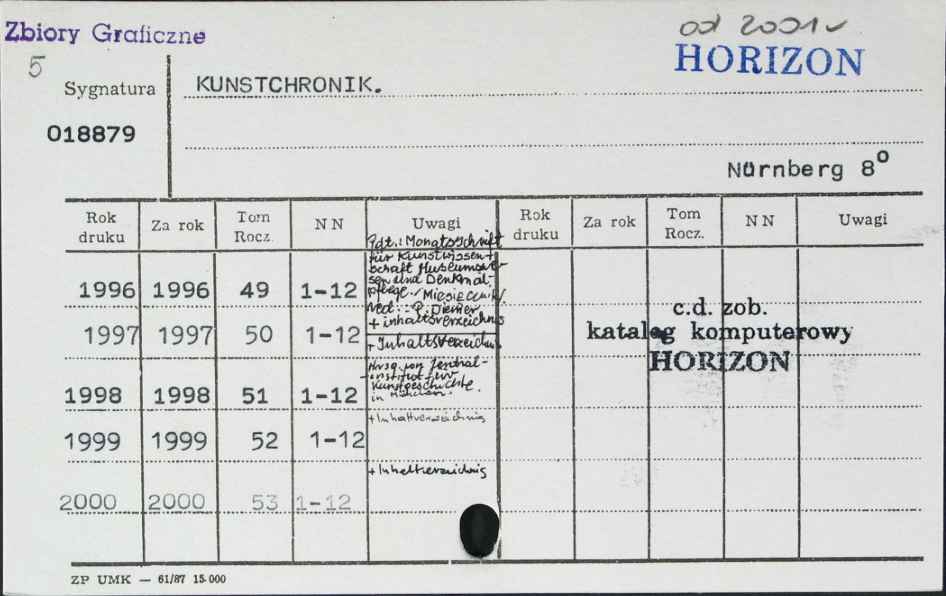 Zbiory Graficzne
od 2001
HORIZON
5
Sygnatura
KUNSTCHRONIK.
018879
Nürnberg 8°
Rok druku Za rok Tom Rocz. NN Uwagi Rok druku Za rok Tom Rocz. NN Uwagi
Pdt.: Monatsschrift
für Kunstwissen-
schaft Museumswe-
sen und Denkmal-
pflege. /Miesięcznik/
Red.: P. Diemer
+ inhaltsverzeichnis
1996 1996 49 1-12
1997 1997 50 1-12 + Inhaltsverzeichnis
Hrsg. von Zentral-
institut für
Kunstgeschichte
in München.
1998 1998 51 1-12
+ Inhaltverzeichnis
1999 1999 52 1-12
+ Inhaltverzeichnis
2000 2000 53 1-12
c.d. zob.
katalog komputerowy
HORIZON
ZP UMK — 61/87 15.000